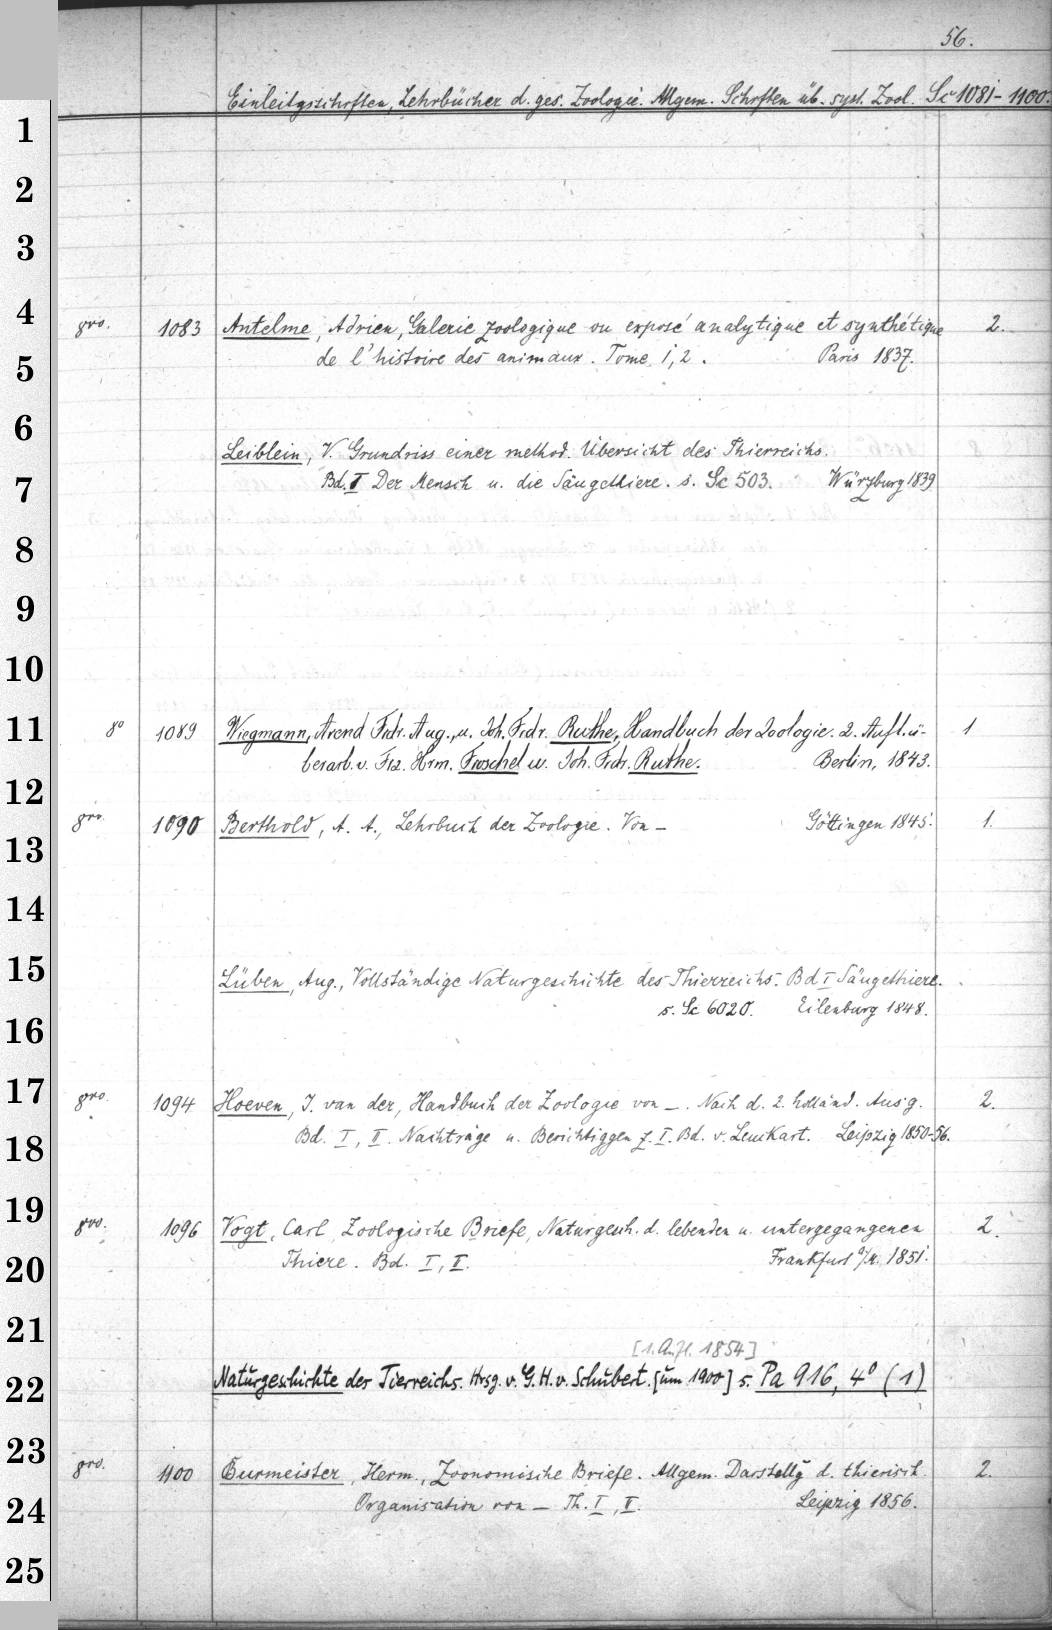 56.
Einleitgsschrften, Lehrbücher d. ges. Zoologie. Allgem. Schrften üb. syst. Zool. Sc 1081-1100.
1
2
3
4
8vo. 1083 Antelme, Adrien, Galerie zoologique ou exposé analytique et synthétique 2.
de l'histoire des animaux. Tome 1, 2. Paris 1837.
5
6
Leiblein, V. Grundriss einer method. Übersicht des Thierreichs.
7
Bd. I Der Mensch u. die Säugethiere. s. Sc 503. Würzburg 1839
8
9
10
11
8° 1089 Wiegmann, Arend Frdr. Aug., u. Joh. Frdr. Ruthe, Handbuch der Zoologie. 2. Aufl. ü-1
berarb. v. Frz. Hrm. Troschel u. Joh. Frdr. Ruthe. Berlin, 1843.
12
8vo. 1090 Berthold, A. A., Lehrbuch der Zoologie. Von — Göttingen 1845. 1.
13
14
15
Lüben, Aug., Vollständige Naturgeschichte des Thierreichs. Bd I Säugethiere.
s. Sc 6020. Eilenburg 1848.
16
17
8vo. 1094 Hoeven, J. van der, Handbuch der Zoologie von —. Nach d. 2. holländ. Ausg. 2.
Bd. I, II. Nachträge u. Berichtiggen z. I. Bd. v. Leuckart. Leipzig 1850-56.
18
19
8vo. 1096 Vogt, Carl, Zoologische Briefe, Naturgesch. d. lebenden u. untergegangenen 2.
Thiere. Bd. I, II. Frankfurt a/M. 1851.
20
21
[1. Aufl. 1854]
22
Naturgeschichte des Tierreichs. Hrsg. v. G. H. v. Schubert. [um 1900] s. Pa 916, 4° (1)
23
8vo. 1100 Burmeister, Herm., Zoonomische Briefe. Allgem. Darstellg d. thierisch. 2.
Organisation von — Th. I, II. Leipzig 1856.
24
25